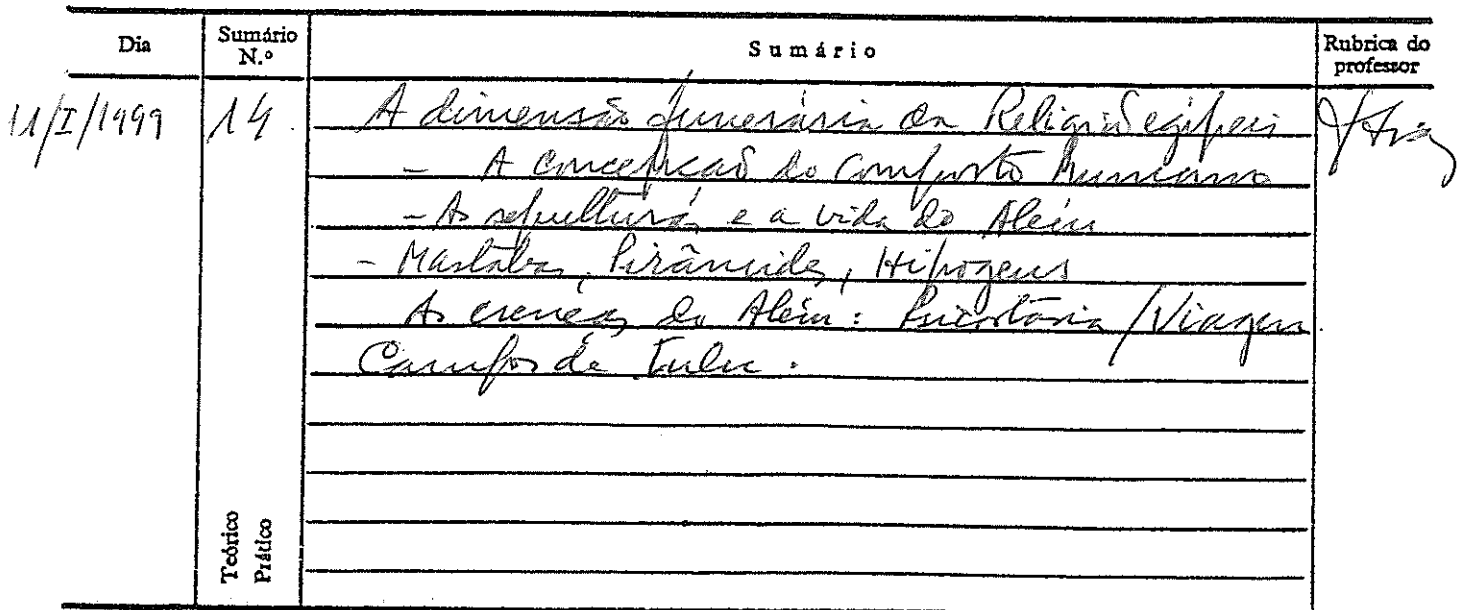 Dia Sumário N.º Sumário Rubrica do professor
11/I/1999 14. A dimensão funerária da Religião egípcia
- A concepção do composto humano
- As sepulturas e a vida do Além
- Mastabas, Pirâmides, Hipogeus
As crenças do Além: Psicostasia / Viagem.
Campos de Ialu.
Teórico
Prático